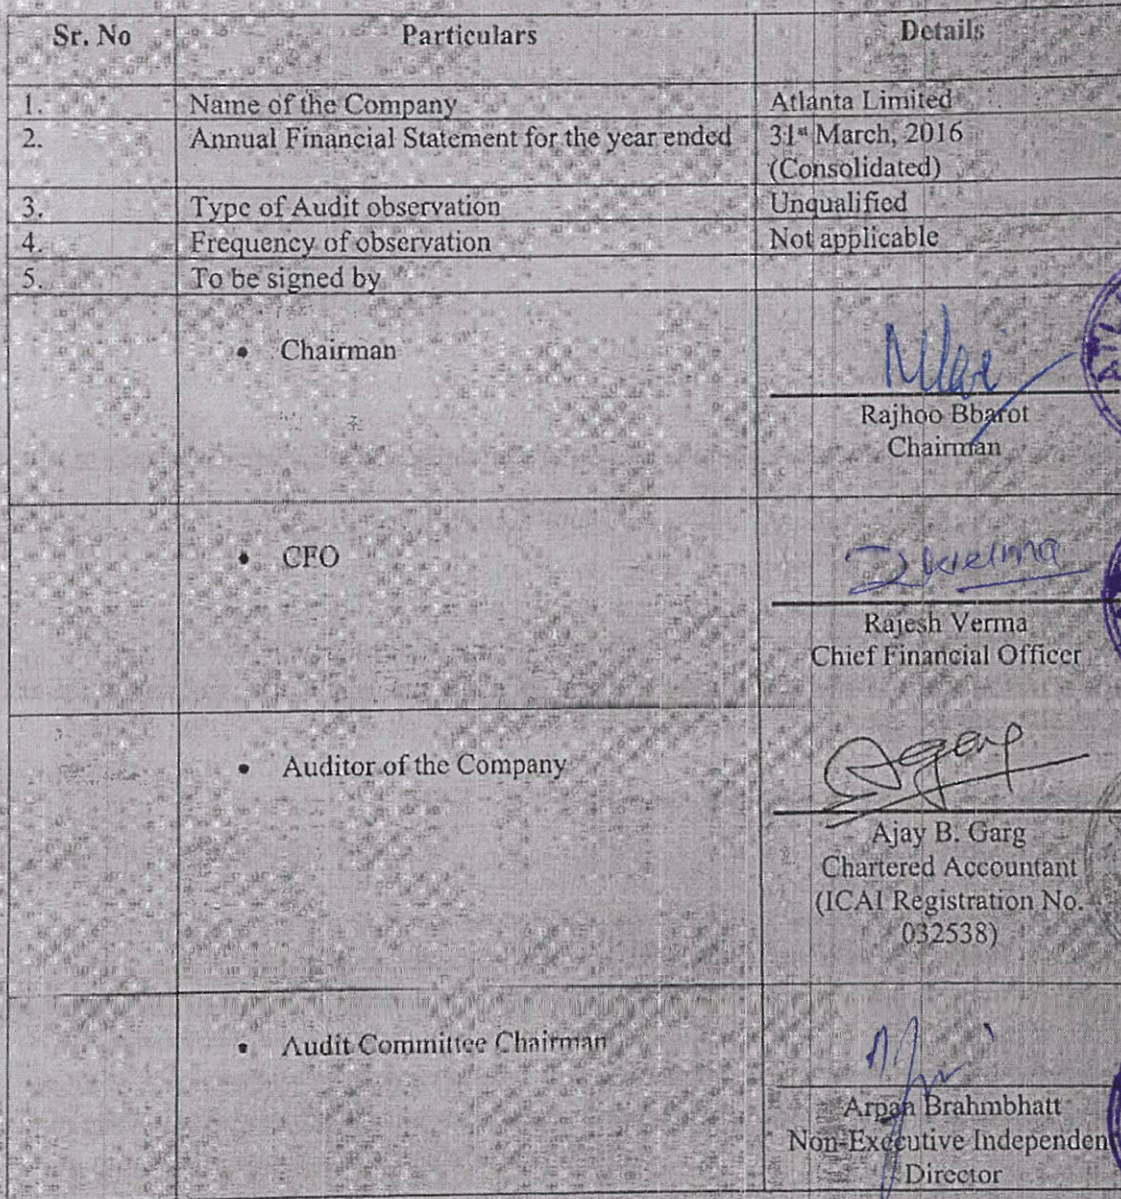 Sr. No Particulars Details
1. Name of the Company Atlanta Limited
2. Annual Financial Statement for the year ended 31st March, 2016
(Consolidated)
3. Type of Audit observation Unqualified
4. Frequency of observation Not applicable
5. To be signed by
• Chairman
Rajhoo Bbarot
Chairman
• CFO
Rajesh Verma
Chief Financial Officer
• Auditor of the Company
Ajay B. Garg
Chartered Accountant
(ICAI Registration No.
032538)
• Audit Committee Chairman
Arpan Brahmbhatt
Non-Executive Independen
Director